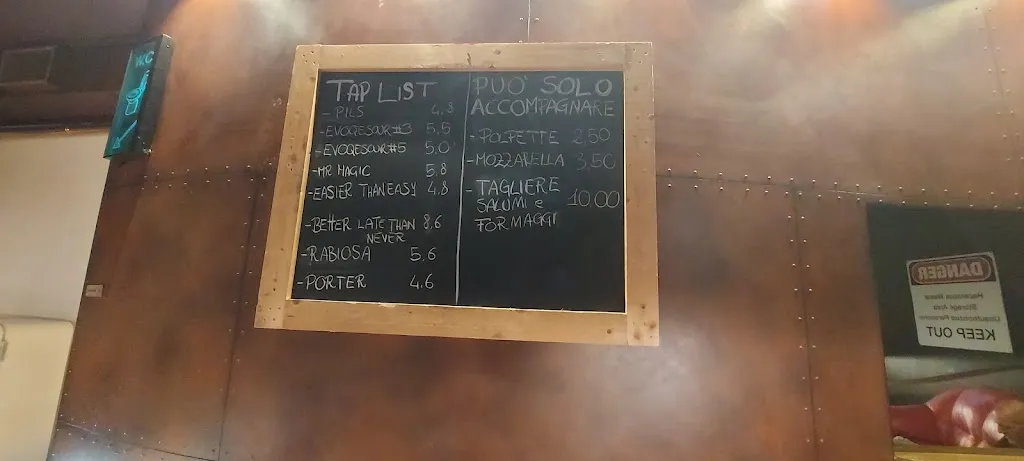 WC
TAP LIST
- PILS 4,8
- EVOQESOUR#3 5,5
- EVOQESOUR#5 5.0
- MR MAGIC 5.8
- EASIER THAN EASY 4,8
- BETTER LATE THAN 8,6
NEVER
- RABIOSA 5,6
- PORTER 4.6
PUO' SOLO
ACCOMPAGNARE
- POLPETTE 2,50
- MOZZARELLA 3,50
- TAGLIERE
SALUMI e 10,00
FORMAGGI
DANGER
Hazardous Waste
Storage Area
Unauthorized Personnel
KEEP OUT